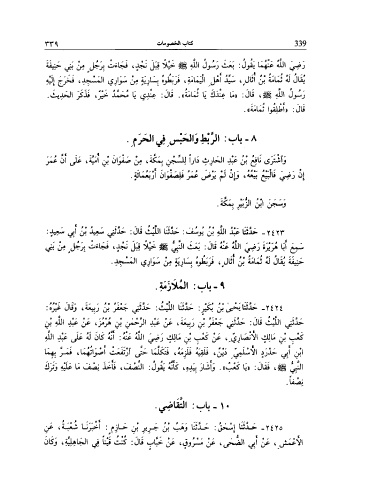 339 كتاب الخصومات ٣٣٩
رَضِيَ اللَّهُ عَنْهُمَا يَقُولُ: بَعَثَ رَسُولُ اللَّهِ ﷺ خَيْلًا قِبَلَ نَجْدٍ، فَجَاءَتْ بِرَجُلٍ مِنْ بَنِي حَنِيفَةَ
يُقَالُ لَهُ ثُمَامَةُ بْنُ أُثَالٍ، سَيِّدُ أَهْلِ الْيَمَامَةِ، فَرَبَطُوهُ بِسَارِيَةٍ مِنْ سَوَارِي الْمَسْجِدِ، فَخَرَجَ إِلَيْهِ
رَسُولُ اللَّهِ ﷺ، قَالَ: «مَا عِنْدَكَ يَا ثُمَامَةُ». قَالَ: عِنْدِي يَا مُحَمَّدُ خَيْرٌ، فَذَكَرَ الْحَدِيثَ.
قَالَ: «أَطْلِقُوا ثُمَامَةَ».
٨ - باب: الرَّبْطِ وَالْحَبْسِ فِي الْحَرَمِ.
وَاشْتَرَى نَافِعُ بْنُ عَبْدِ الْحَارِثِ دَاراً لِلسِّجْنِ بِمَكَّةَ، مِنْ صَفْوَانَ بْنِ أُمَيَّةَ، عَلَى أَنَّ عُمَرَ
إِنْ رَضِيَ فَالْبَيْعُ بَيْعُهُ، وَإِنْ لَمْ يَرْضَ عُمَرُ فَلِصَفْوَانَ أَرْبَعُمِائَةٍ.
وَسَجَنَ ابْنُ الزُّبَيْرِ بِمَكَّةَ.
٢٤٢٣ - حَدَّثَنَا عَبْدُ اللَّهِ بْنُ يُوسُفَ: حَدَّثَنَا اللَّيْثُ قَالَ: حَدَّثَنِي سَعِيدُ بْنُ أَبِي سَعِيدٍ:
سَمِعَ أَبَا هُرَيْرَةَ رَضِيَ اللَّهُ عَنْهُ قَالَ: بَعَثَ النَّبِيُّ ﷺ خَيْلًا قِبَلَ نَجْدٍ، فَجَاءَتْ بِرَجُلٍ مِنْ بَنِي
حَنِيفَةَ يُقَالُ لَهُ ثُمَامَةُ بْنُ أُثَالٍ، فَرَبَطُوهُ بِسَارِيَةٍ مِنْ سَوَارِي الْمَسْجِدِ.
٩ - باب: الْمُلَازَمَةِ.
٢٤٢٤ - حَدَّثَنَا يَحْيَى بْنُ بُكَيْرٍ: حَدَّثَنَا اللَّيْثُ: حَدَّثَنِي جَعْفَرُ بْنُ رَبِيعَةَ، وَقَالَ غَيْرُهُ:
حَدَّثَنِي اللَّيْثُ قَالَ: حَدَّثَنِي جَعْفَرُ بْنُ رَبِيعَةَ، عَنْ عَبْدِ الرَّحْمٰنِ بْنِ هُرْمُزَ، عَنْ عَبْدِ اللَّهِ بْنِ
كَعْبِ بْنِ مَالِكٍ الْأَنْصَارِيِّ، عَنْ كَعْبِ بْنِ مَالِكٍ رَضِيَ اللَّهُ عَنْهُ: أَنَّهُ كَانَ لَهُ عَلَى عَبْدِ اللَّهِ
ابْنِ أَبِي حَدْرَدٍ الْأَسْلَمِيِّ دَيْنٌ، فَلَقِيَهُ فَلَزِمَهُ، فَتَكَلَّمَا حَتَّى ارْتَفَعَتْ أَصْوَاتُهُمَا، فَمَرَّ بِهِمَا
النَّبِيُّ ﷺ، فَقَالَ: «يَا كَعْبُ». وَأَشَارَ بِيَدِهِ، كَأَنَّهُ يَقُولُ: النِّصْفَ، فَأَخَذَ نِصْفَ مَا عَلَيْهِ وَتَرَكَ
نِصْفاً.
١٠ - باب: التَّقَاضِي.
٢٤٢٥ - حَدَّثَنَا إِسْحٰقُ: حَدَّثَنَا وَهْبُ بْنُ جَرِيرِ بْنِ حَازِمٍ: أَخْبَرَنَا شُعْبَةُ، عَنِ
الْأَعْمَشِ، عَنْ أَبِي الضُّحَى، عَنْ مَسْرُوقٍ، عَنْ خَبَّابٍ قَالَ: كُنْتُ قَيْناً فِي الْجَاهِلِيَّةِ، وَكَانَ